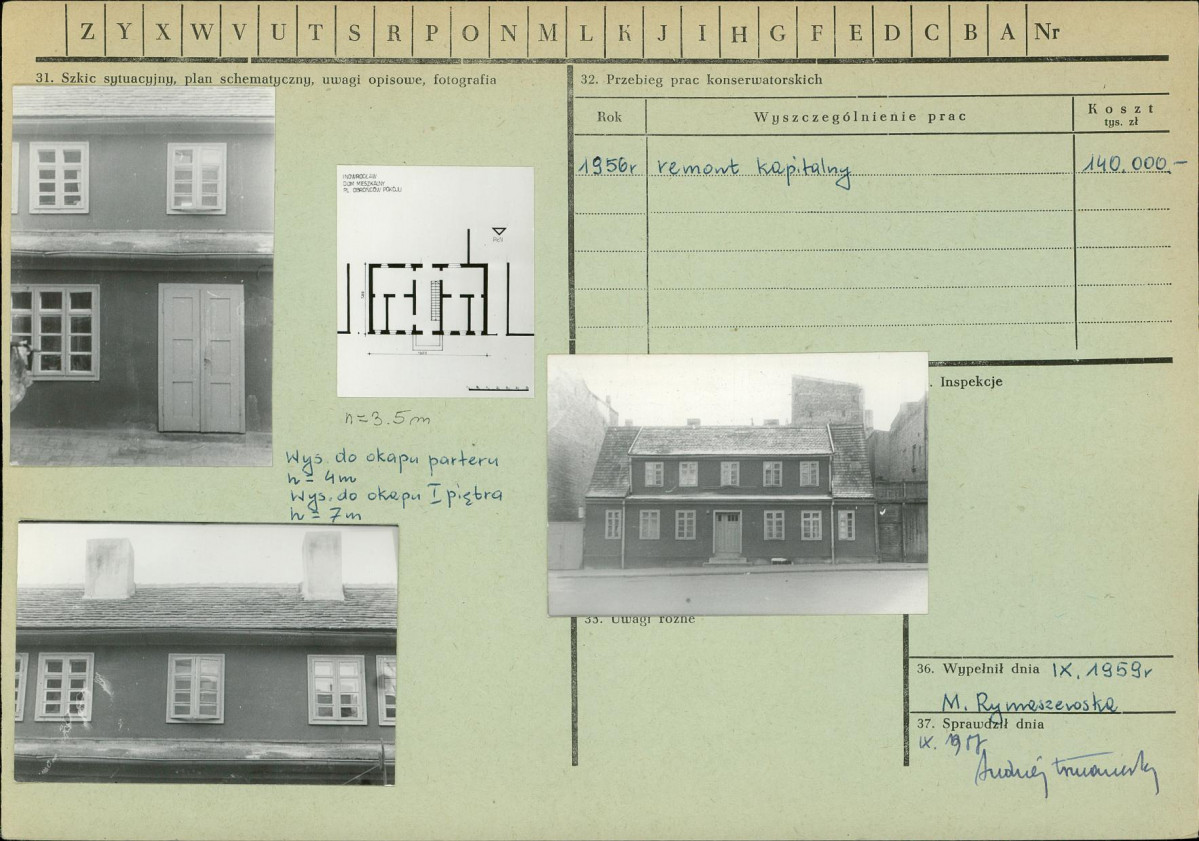 Z Y X W V U T S R P O N M L K J I H G F E D C B A Nr
31. Szkic sytuacyjny, plan schematyczny, uwagi opisowe, fotografia
INOWROCŁAW
DOM MIESZKALNY
PL. OBROŃCÓW POKOJU
h=3.5m
Wys. do okapu parteru
h = 4m
Wys. do okapu I piętra
h = 7m
32. Przebieg prac konserwatorskich
Rok Wyszczególnienie prac Koszt
tys. zł
1956r remont kapitalny 140.000,-
Inspekcje
33. Uwagi różne
36. Wypełnił dnia IX. 1959r
M. Rymaszewska
37. Sprawdził dnia
IX.
Andrzej